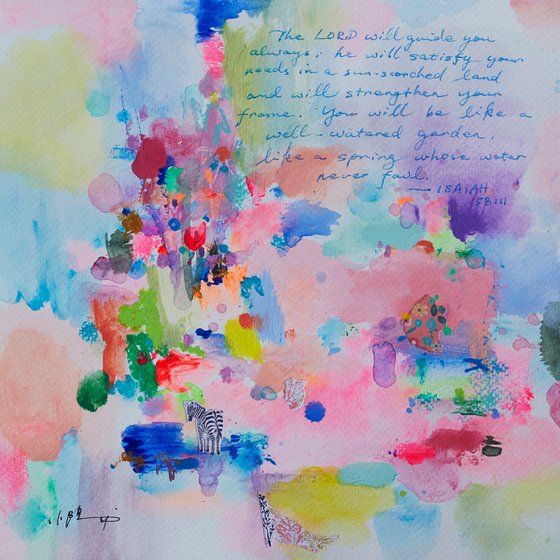 The LORD will guide you
always; he will satisfy your
needs in a sun-scorched land
and will strengthen your
frame. You will be like a
well-watered garden,
like a spring whose water
never fail.
— ISAIAH
58:11